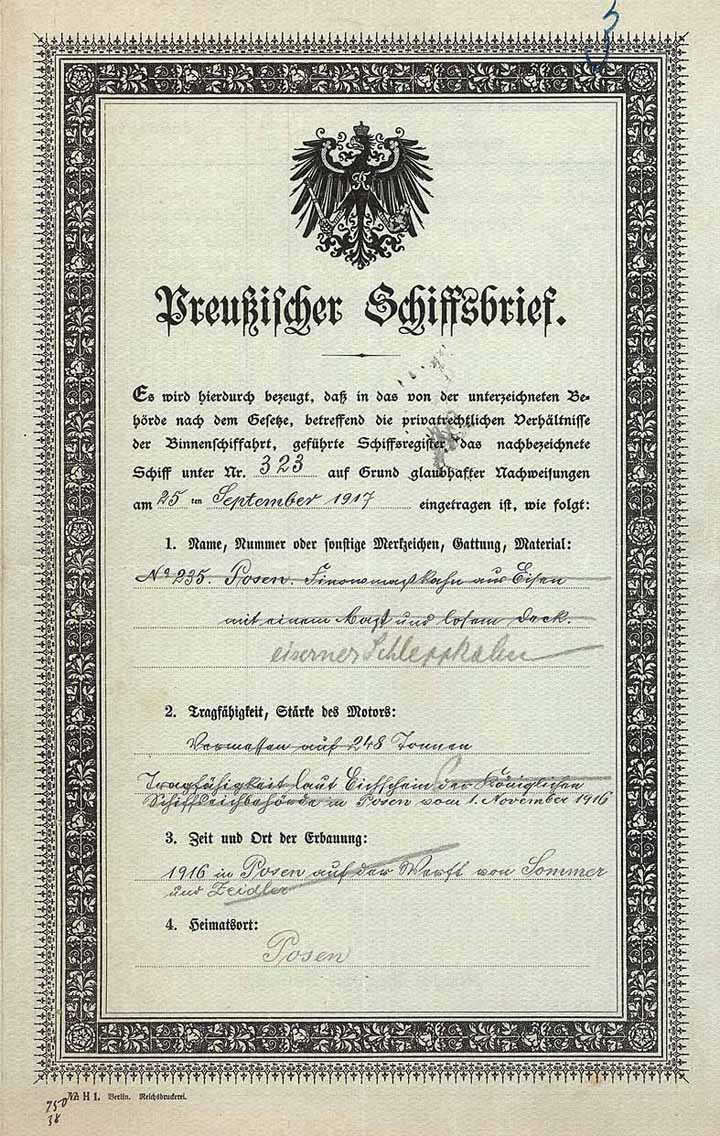 3
Preußischer Schiffsbrief.
Es wird hierdurch bezeugt, daß in das von der unterzeichneten Be-
hörde nach dem Gesetze, betreffend die privatrechtlichen Verhältnisse
der Binnenschiffahrt, geführte Schiffsregister das nachbezeichnete
Schiff unter Nr. 323 auf Grund glaubhafter Nachweisungen
am 25 ten September 1917 eingetragen ist, wie folgt:
1. Name, Nummer oder sonstige Merkzeichen, Gattung, Material:
No 235. Posen. Finowmaßkahn aus Eisen
mit einem Mast und losem Deck.
eiserner Schleppkahn
2. Tragfähigkeit, Stärke des Motors:
Vermessen auf 248 Tonnen
Tragfähigkeit laut Eichschein der Königlichen
Schiffseichbehörde in Posen vom 1. November 1916
3. Zeit und Ort der Erbauung:
1916 in Posen auf der Werft von Sommer
und Zeidler
4. Heimatsort:
Posen
H 1. Berlin. Reichsdruckerei.
750
38